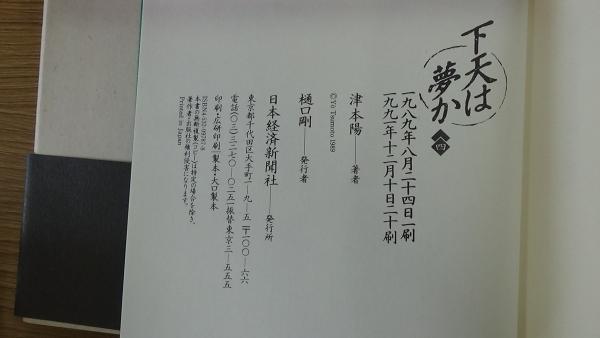 下天は
夢か 四
一九八九年八月二十四日一刷
一九九一年十二月十日二十刷
津本陽——著者
©Yo Tsumoto 1989
樋口剛——発行者
日本経済新聞社——発行所
東京都千代田区大手町一—九—五 〒一〇〇—六六
電話(〇三)三二七〇—〇二五一 振替東京三—五五五
印刷・広研印刷 製本・大口製本
本書の無断複製(コピー)は特定の場合を除き、
著作者・出版社の権利侵害になります。
Printed in Japan